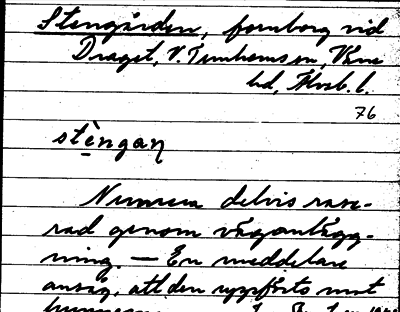 Stengården, fornborg vid
Draget, V. Tunhems sn,Väne
hd, Älvsb. l.
76
stèngaɳ
Numera delvis rase-
rad genom väganlägg-
ning. — En meddelare
ansåg, att den uppförts mot